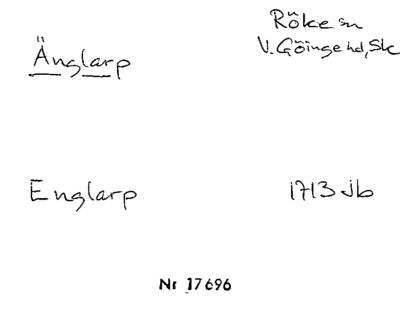 Röke sn
Änglarp
V. Göinge hd, Sk
Englarp
1713 Jb
Nr 17696